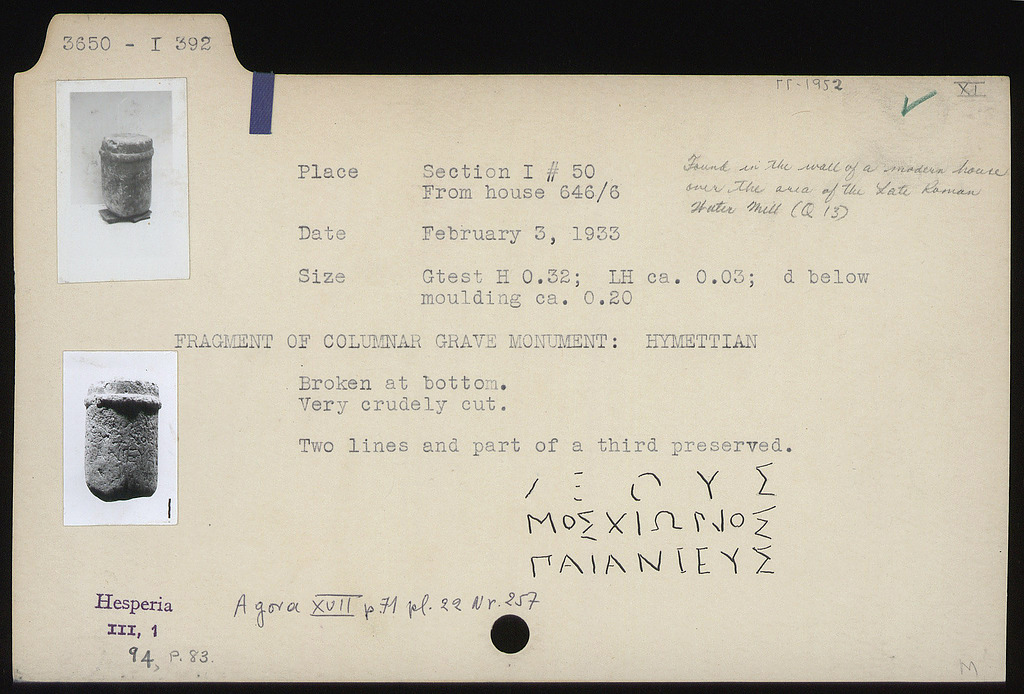 3650 - I 392
ΓΓ-1952
XI
Place Section I # 50
From house 646/6
Found in the wall of a modern house
over the area of the Late Roman
Water Mill (Q 13)
Date February 3, 1933
Size Gtest H 0.32; LH ca. 0.03; d below
moulding ca. 0.20
FRAGMENT OF COLUMNAR GRAVE MONUMENT: HYMETTIAN
Broken at bottom.
Very crudely cut.
Two lines and part of a third preserved.
ΥΣ
ΜΟΣΧΙΩΝΟΣ
ΠΑΙΑΝΙΕΥΣ
Hesperia
III, 1
94, P. 83.
Agora XVII p.71 pl. 22 Nr. 257
M